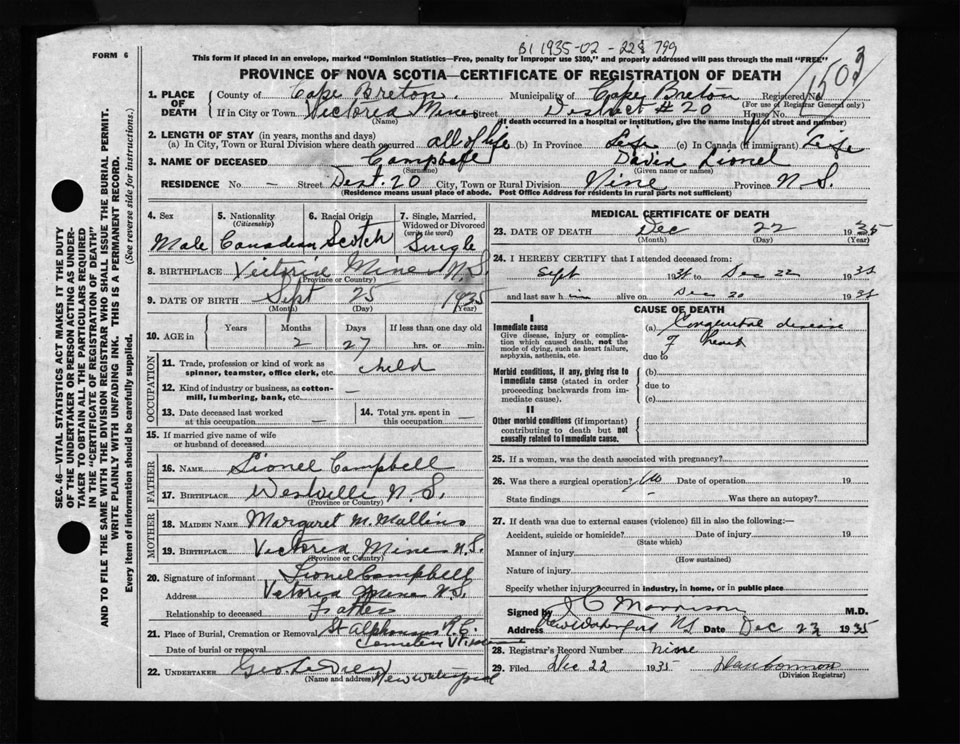 B1 1935-02-228799
FORM 6
This form if placed in an envelope, marked "Dominion Statistics—Free, penalty for improper use $300," and properly addressed will pass through the mail "FREE"
PROVINCE OF NOVA SCOTIA—CERTIFICATE OF REGISTRATION OF DEATH
1503
1. PLACE OF DEATH
County of Cape Breton Municipality of Cape Breton Registered No.
(For use of Registrar General only)
If in City or Town Victoria Mines Street District #20 House No.
(Name) (If death occurred in a hospital or institution, give the name instead of street and number)
2. LENGTH OF STAY (in years, months and days)
(a) In City, Town or Rural Division where death occurred all of life (b) In Province Life (c) In Canada (if immigrant) Life
3. NAME OF DECEASED Campbell David Lionel
(Surname) (Given name or names)
RESIDENCE No. — Street Dist. 20 City, Town or Rural Division Mine Province N S.
(Residence means usual place of abode. Post Office Address for residents in rural parts not sufficient)
4. Sex Male
5. Nationality (Citizenship) Canadian
6. Racial Origin Scotch
7. Single, Married, Widowed or Divorced (write the word) Single
8. BIRTHPLACE Victoria Mines N.S.
(Province or Country)
9. DATE OF BIRTH Sept 25 1935
(Month) (Day) (Year)
10. AGE in Years Months 2 Days 27 If less than one day old hrs. or min.
OCCUPATION
11. Trade, profession or kind of work as spinner, teamster, office clerk, etc. child
12. Kind of industry or business, as cotton-mill, lumbering, bank, etc. —
13. Date deceased last worked at this occupation —
14. Total yrs. spent in this occupation —
15. If married give name of wife or husband of deceased
FATHER
16. NAME Lionel Campbell
17. BIRTHPLACE Westville N S.
(Province or Country)
MOTHER
18. MAIDEN NAME Margaret M. Mullins
19. BIRTHPLACE Victoria Mines N.S.
(Province or Country)
20. Signature of informant Lionel Campbell
Address Victoria Mines N.S.
Relationship to deceased Father
21. Place of Burial, Cremation or Removal St Alphonsus R.C. Cemetery
Date of burial or removal
22. UNDERTAKER New Waterford
(Name and address)
MEDICAL CERTIFICATE OF DEATH
23. DATE OF DEATH Dec 22 1935
(Month) (Day) (Year)
24. I HEREBY CERTIFY that I attended deceased from:
Sept 1935 to Dec 22 1935
and last saw him alive on Dec 20 1935
CAUSE OF DEATH
I
Immediate cause
Give disease, injury or complication which caused death, not the mode of dying, such as heart failure, asphyxia, asthenia, etc.
(a) Congenital disease
of heart
due to
Morbid conditions, if any, giving rise to immediate cause (stated in order proceeding backwards from immediate cause).
(b)
due to
(c)
II
Other morbid conditions (if important) contributing to death but not causally related to immediate cause.
25. If a woman, was the death associated with pregnancy?
26. Was there a surgical operation? No Date of operation 19
State findings Was there an autopsy?
27. If death was due to external causes (violence) fill in also the following:—
Accident, suicide or homicide? Date of injury 19
(State which)
Manner of injury
(How sustained)
Nature of injury
Specify whether injury occurred in industry, in home, or in public place
Signed by J C Morrison M.D.
Address New Waterford N S Date Dec 23 1935
28. Registrar's Record Number Nine
29. Filed Dec 22 1935
(Division Registrar)
SEC. 46—VITAL STATISTICS ACT MAKES IT THE DUTY
OF THE UNDERTAKER OR PERSON ACTING AS UNDER-
TAKER TO OBTAIN ALL THE PARTICULARS REQUIRED
IN THE "CERTIFICATE OF REGISTRATION OF DEATH"
AND TO FILE THE SAME WITH THE DIVISION REGISTRAR WHO SHALL ISSUE THE BURIAL PERMIT.
WRITE PLAINLY WITH UNFADING INK. THIS IS A PERMANENT RECORD.
Every item of information should be carefully supplied. (See reverse side for instructions.)